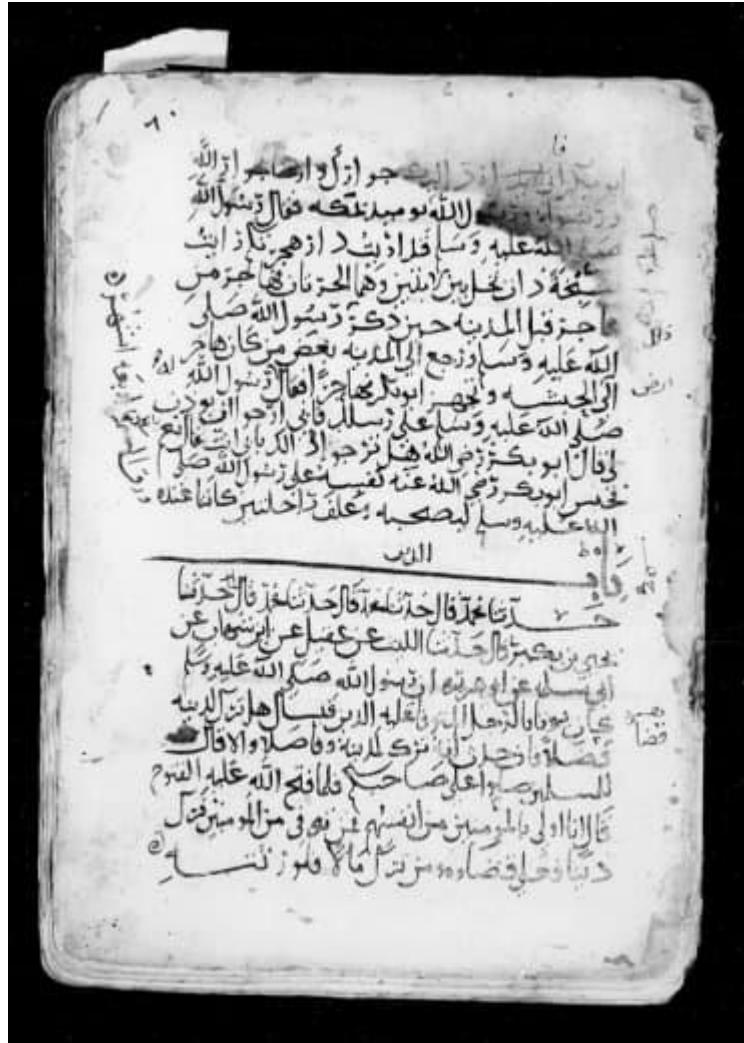 جوارك وارضا جوار الله
ورسوله ورسول الله يوميذ بمكه فقال رسول الله
صلى الله عليه وسلم قد اريت دار هجرتكم رايت
سبخة ذات نخل بين لابتين وهما الحرتان فهاجر من
هاجر قبل المدينه حين ذكر رسول الله صلى
الله عليه وسلم ورجع الى المدينه بعض من كان هاجر
الى الحبشه وتجهز ابو بكر مهاجرا فقال رسول الله
صلى الله عليه وسلم على رسلك فاني ارجو ان يوذن
لي قال ابو بكر رضي الله هل ترجو ذلك بابي انت قال نعم
فحبس ابو بكر رضي الله عنه نفسه على رسول الله صلى
الله عليه وسلم ليصحبه وعلف راحلتين كانتا عنده
باب الدين
حدثنا محمد قال حدثنا محمد قال حدثنا محمد قال حدثنا
يحيى بن بكير قال حدثنا الليث عن عقيل عن ابن شهاب عن
ابي سلمه عن ابي هريره ان رسول الله صلى الله عليه وسلم
كان يوتا بالرجل المتوفا عليه الدين فيسال هل ترك لدينه
فضلا فان حدث انه ترك لدينه وفا صلا والا قال
للمسلمين صلوا على صاحبكم فلما فتح الله عليه الفتوح
قال انا اولى بالمومنين من انفسهم فمن توفي من المومنين فترك
دينا فعلي قضاوه ومن ترك مالا فلورثته
ارض
قضا